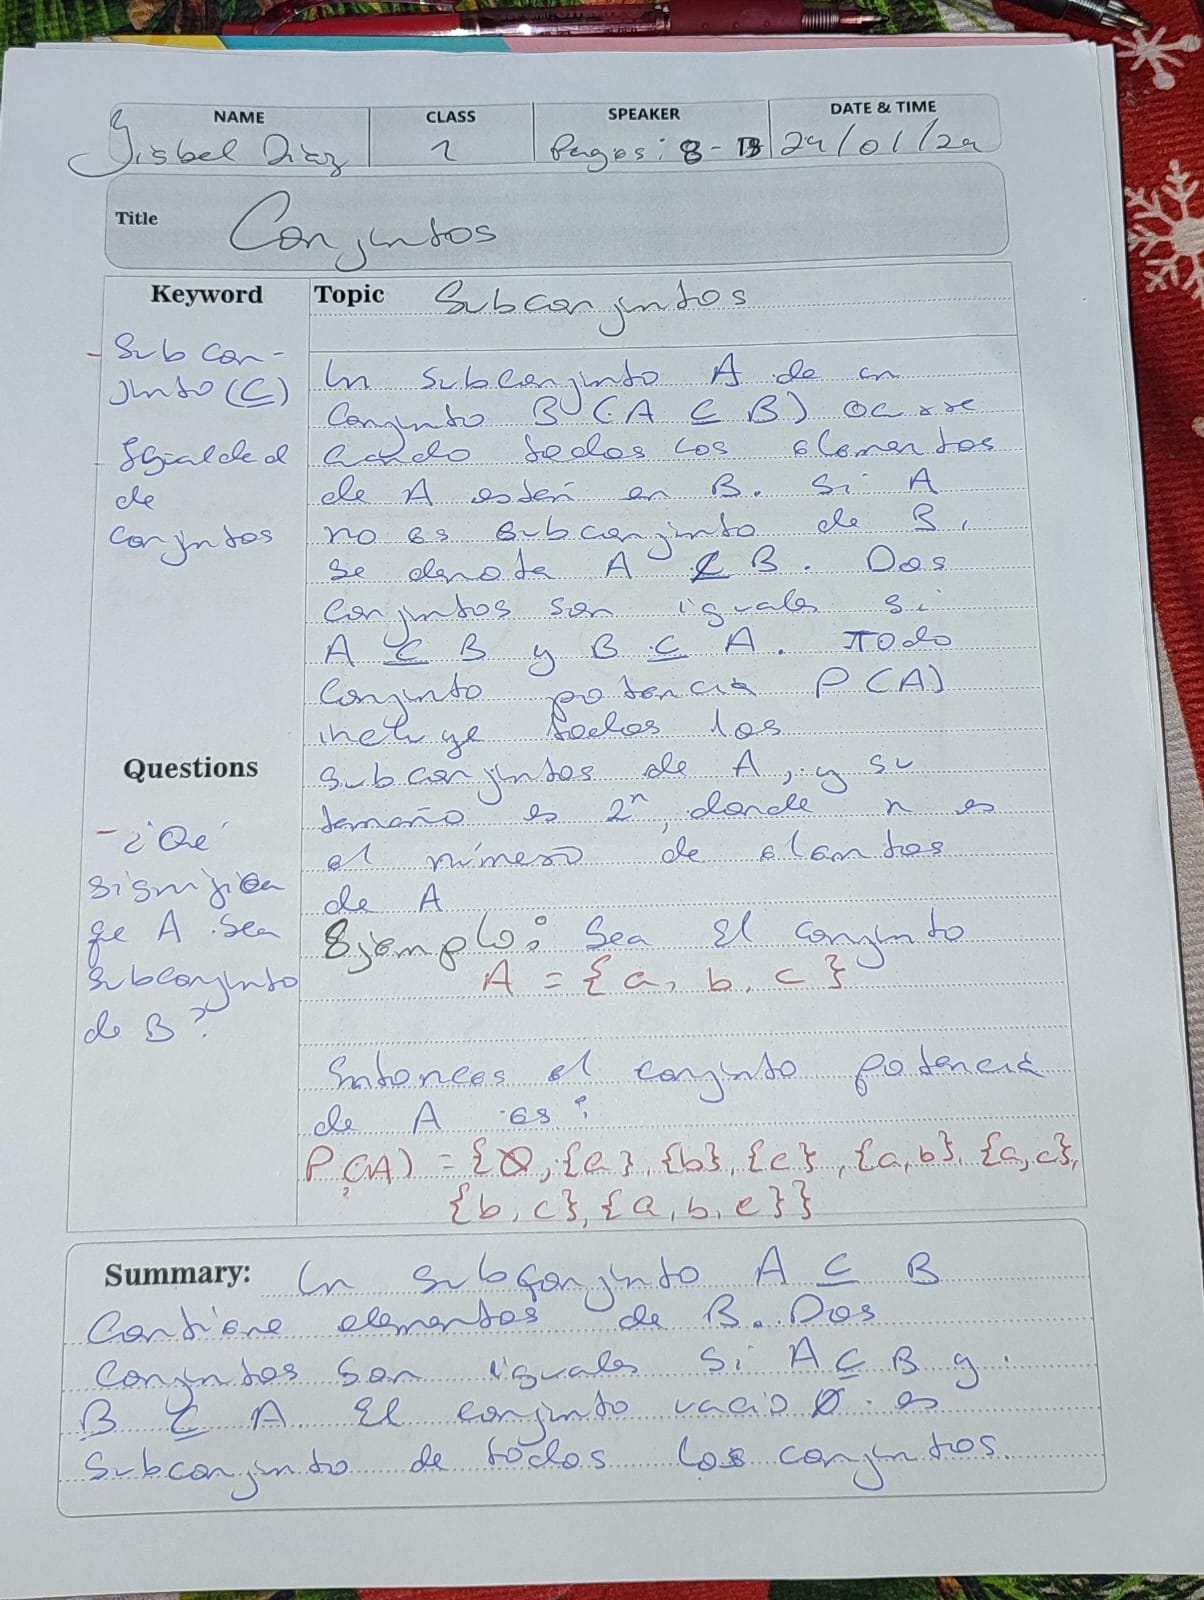 NAME CLASS SPEAKER DATE & TIME
Yisbel Diaz 1 Pagos: 8-13 24/01/24
Title Conjuntos
Keyword
Subcon-
junto (⊆)
Igualdad
de
Conjuntos
Questions
- ¿Qué
significa
que A sea
subconjunto
de B?
Topic Subconjuntos
Un subconjunto A de un
Conjunto B (A ⊆ B) ocurre
cuando todos los elementos
de A están en B. Si A
no es subconjunto de B,
se denota A ⊈ B. Dos
conjuntos son iguales si
A ⊆ B y B ⊆ A. Todo
Conjunto potencia P(A)
incluye todos los
subconjuntos de A, y su
tamaño es 2ⁿ, donde n es
el número de elemntos
de A
Ejemplo: Sea El conjunto
A = {a, b, c}
Entonces el conjunto potencia
de A es:
P(A) = {∅, {a}, {b}, {c}, {a,b}, {a,c},
{b,c}, {a,b,c}}
Summary: Un subconjunto A ⊆ B
Contiene elementos de B. Dos
Conjuntos son iguales Si A ⊆ B y
B ⊆ A. El conjunto vacio ∅ es
Subconjunto de todos los conjuntos.